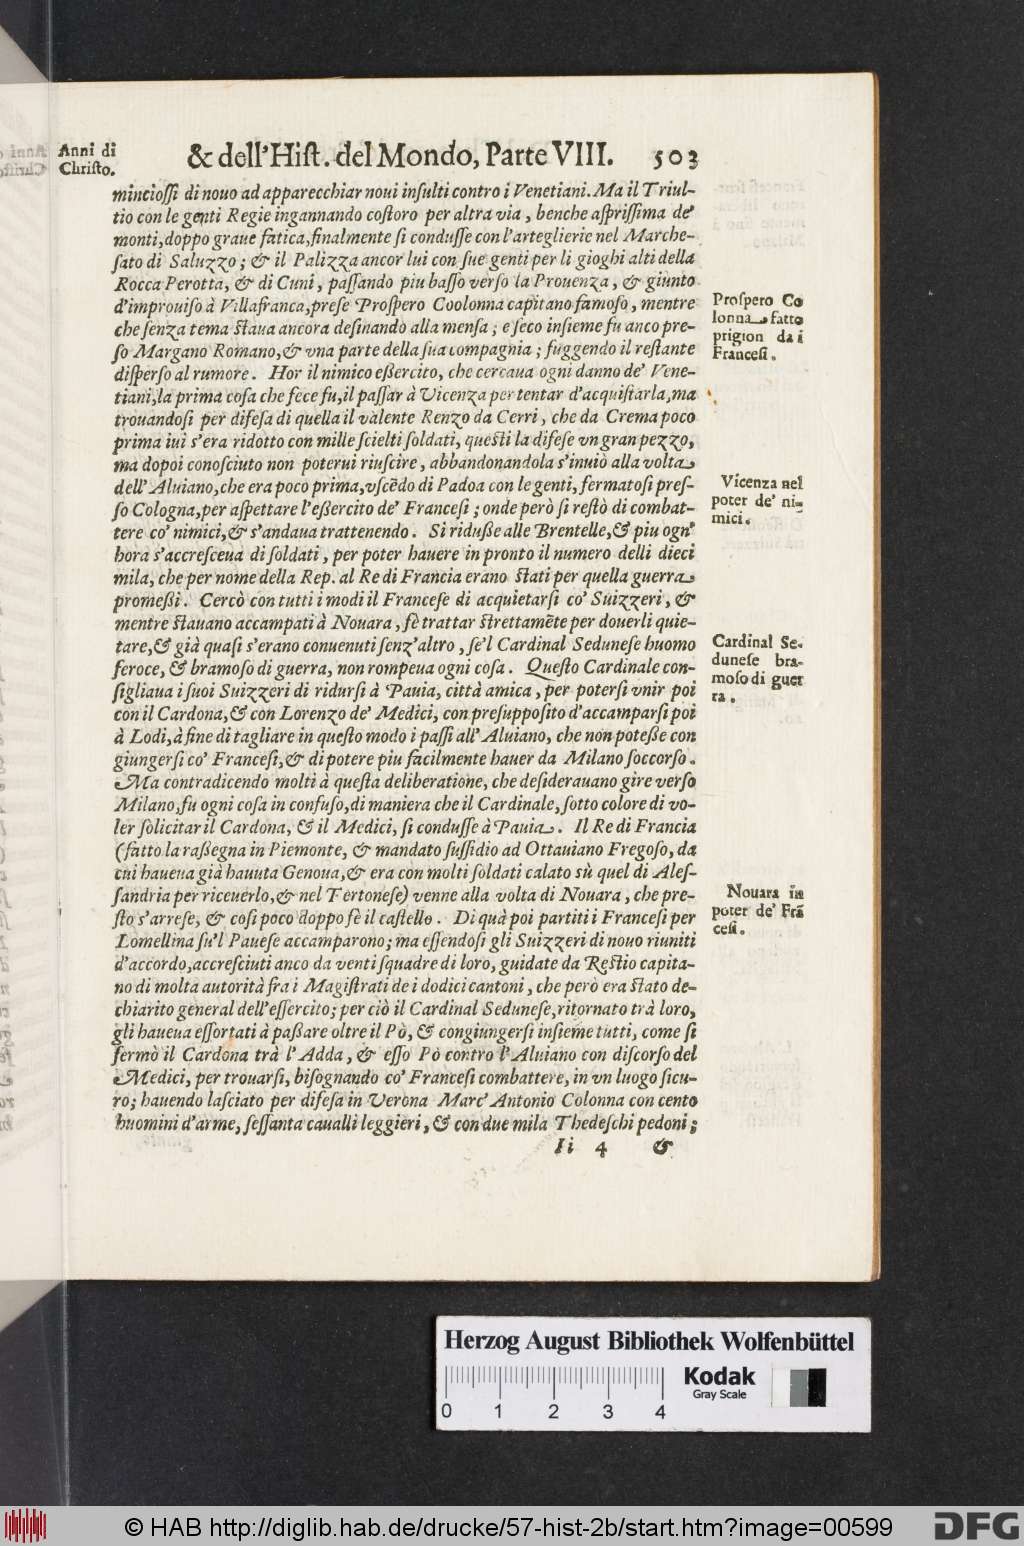 Anni di
Christo.
& dell'Hist. del Mondo, Parte VIII. 503
minciossi di nouo ad apparecchiar noui insulti contro i Venetiani. Ma il Triul-
tio con le genti Regie ingannando costoro per altra via, benche asprissima de'
monti, doppo graue fatica, finalmente si condusse con l'arteglierie nel Marche-
sato di Saluzzo; & il Palizza ancor lui con sue genti per li gioghi alti della
Rocca Perotta, & di Cuni, passando piu basso verso la Prouenza, & giunto
d'improuiso à Villafranca, prese Prospero Coolonna capitano famoso, mentre
che senza tema staua ancora desinando alla mensa; e seco insieme fu anco pre-
so Margano Romano, & vna parte della sua compagnia; fuggendo il restante
disperso al rumore. Hor il nimico eßercito, che cercaua ogni danno de' Vene-
tiani, la prima cosa che fece fu, il passar à Vicenza per tentar d'acquistarla, ma
trouandosi per difesa di quella il valente Renzo da Cerri, che da Crema poco
prima iui s'era ridotto con mille scielti soldati, questi la difese vn gran pezzo,
ma dopoi conosciuto non poterui riuscire, abbandonandola s'inuiò alla volta
dell'Aluiano, che era poco prima, vscẽdo di Padoa con le genti, fermatosi pres-
so Cologna, per aspettare l'eßercito de' Francesi; onde però si restò di combat-
tere co' nimici, & s'andaua trattenendo. Si riduße alle Brentelle, & piu ogn'
hora s'accresceua di soldati, per poter hauere in pronto il numero delli dieci
mila, che per nome della Rep. al Re di Francia erano stati per quella guerra
promeßi. Cercò con tutti i modi il Francese di acquietarsi co' Suizzeri, &
mentre stauano accampati à Nouara, fè trattar strettamẽte per douerli quie-
tare, & già quasi s'erano conuenuti senz'altro, se'l Cardinal Sedunese huomo
feroce, & bramoso di guerra, non rompeua ogni cosa. Questo Cardinale con-
sigliaua i suoi Suizzeri di ridursi à Pauia, città amica, per potersi vnir poi
con il Cardona, & con Lorenzo de' Medici, con presupposito d'accamparsi poi
à Lodi, à fine di tagliare in questo modo i passi all'Aluiano, che non poteße con
giungersi co' Francesi, & di potere piu facilmente hauer da Milano soccorso.
Ma contradicendo molti à questa deliberatione, che desiderauano gire verso
Milano, fu ogni cosa in confuso, di maniera che il Cardinale, sotto colore di vo-
ler solicitar il Cardona, & il Medici, si condusse à Pauia. Il Re di Francia
(fatto la raßegna in Piemonte, & mandato sussidio ad Ottauiano Fregoso, da
cui haueua già hauuta Genoua, & era con molti soldati calato sù quel di Ales-
sandria per riceuerlo, & nel Tertonese) venne alla volta di Nouara, che pre-
sto s'arrese, & cosi poco doppo fè il castello. Di quà poi partiti i Francesi per
Lomellina su'l Pauese accamparono; ma essendosi gli Suizzeri di nouo riuniti
d'accordo, accresciuti anco da venti squadre di loro, guidate da Restio capita-
no di molta autorità fra i Magistrati de i dodici cantoni, che però era stato de-
chiarito general dell'essercito; per ciò il Cardinal Sedunese, ritornato trà loro,
gli haueua essortati à paßare oltre il Pò, & congiungersi insieme tutti, come si
fermò il Cardona trà l'Adda, & esso Pò contro l'Aluiano con discorso del
Medici, per trouarsi, bisognando co' Francesi combattere, in vn luogo sicu-
ro; hauendo lasciato per difesa in Verona Marc'Antonio Colonna con cento
huomini d'arme, sessanta caualli leggieri, & con due mila Thedeschi pedoni;
Ii 4 &
Prospero Co
lonna fatto
prigion da i
Francesi.
Vicenza nel
poter de' ni-
mici.
Cardinal Se-
dunese bra-
moso di guer
ra.
Nouara in
poter de' Frã
cesi.
Herzog August Bibliothek Wolfenbüttel
Kodak
Gray Scale
0 1 2 3 4
© HAB http://diglib.hab.de/drucke/57-hist-2b/start.htm?image=00599
DFG